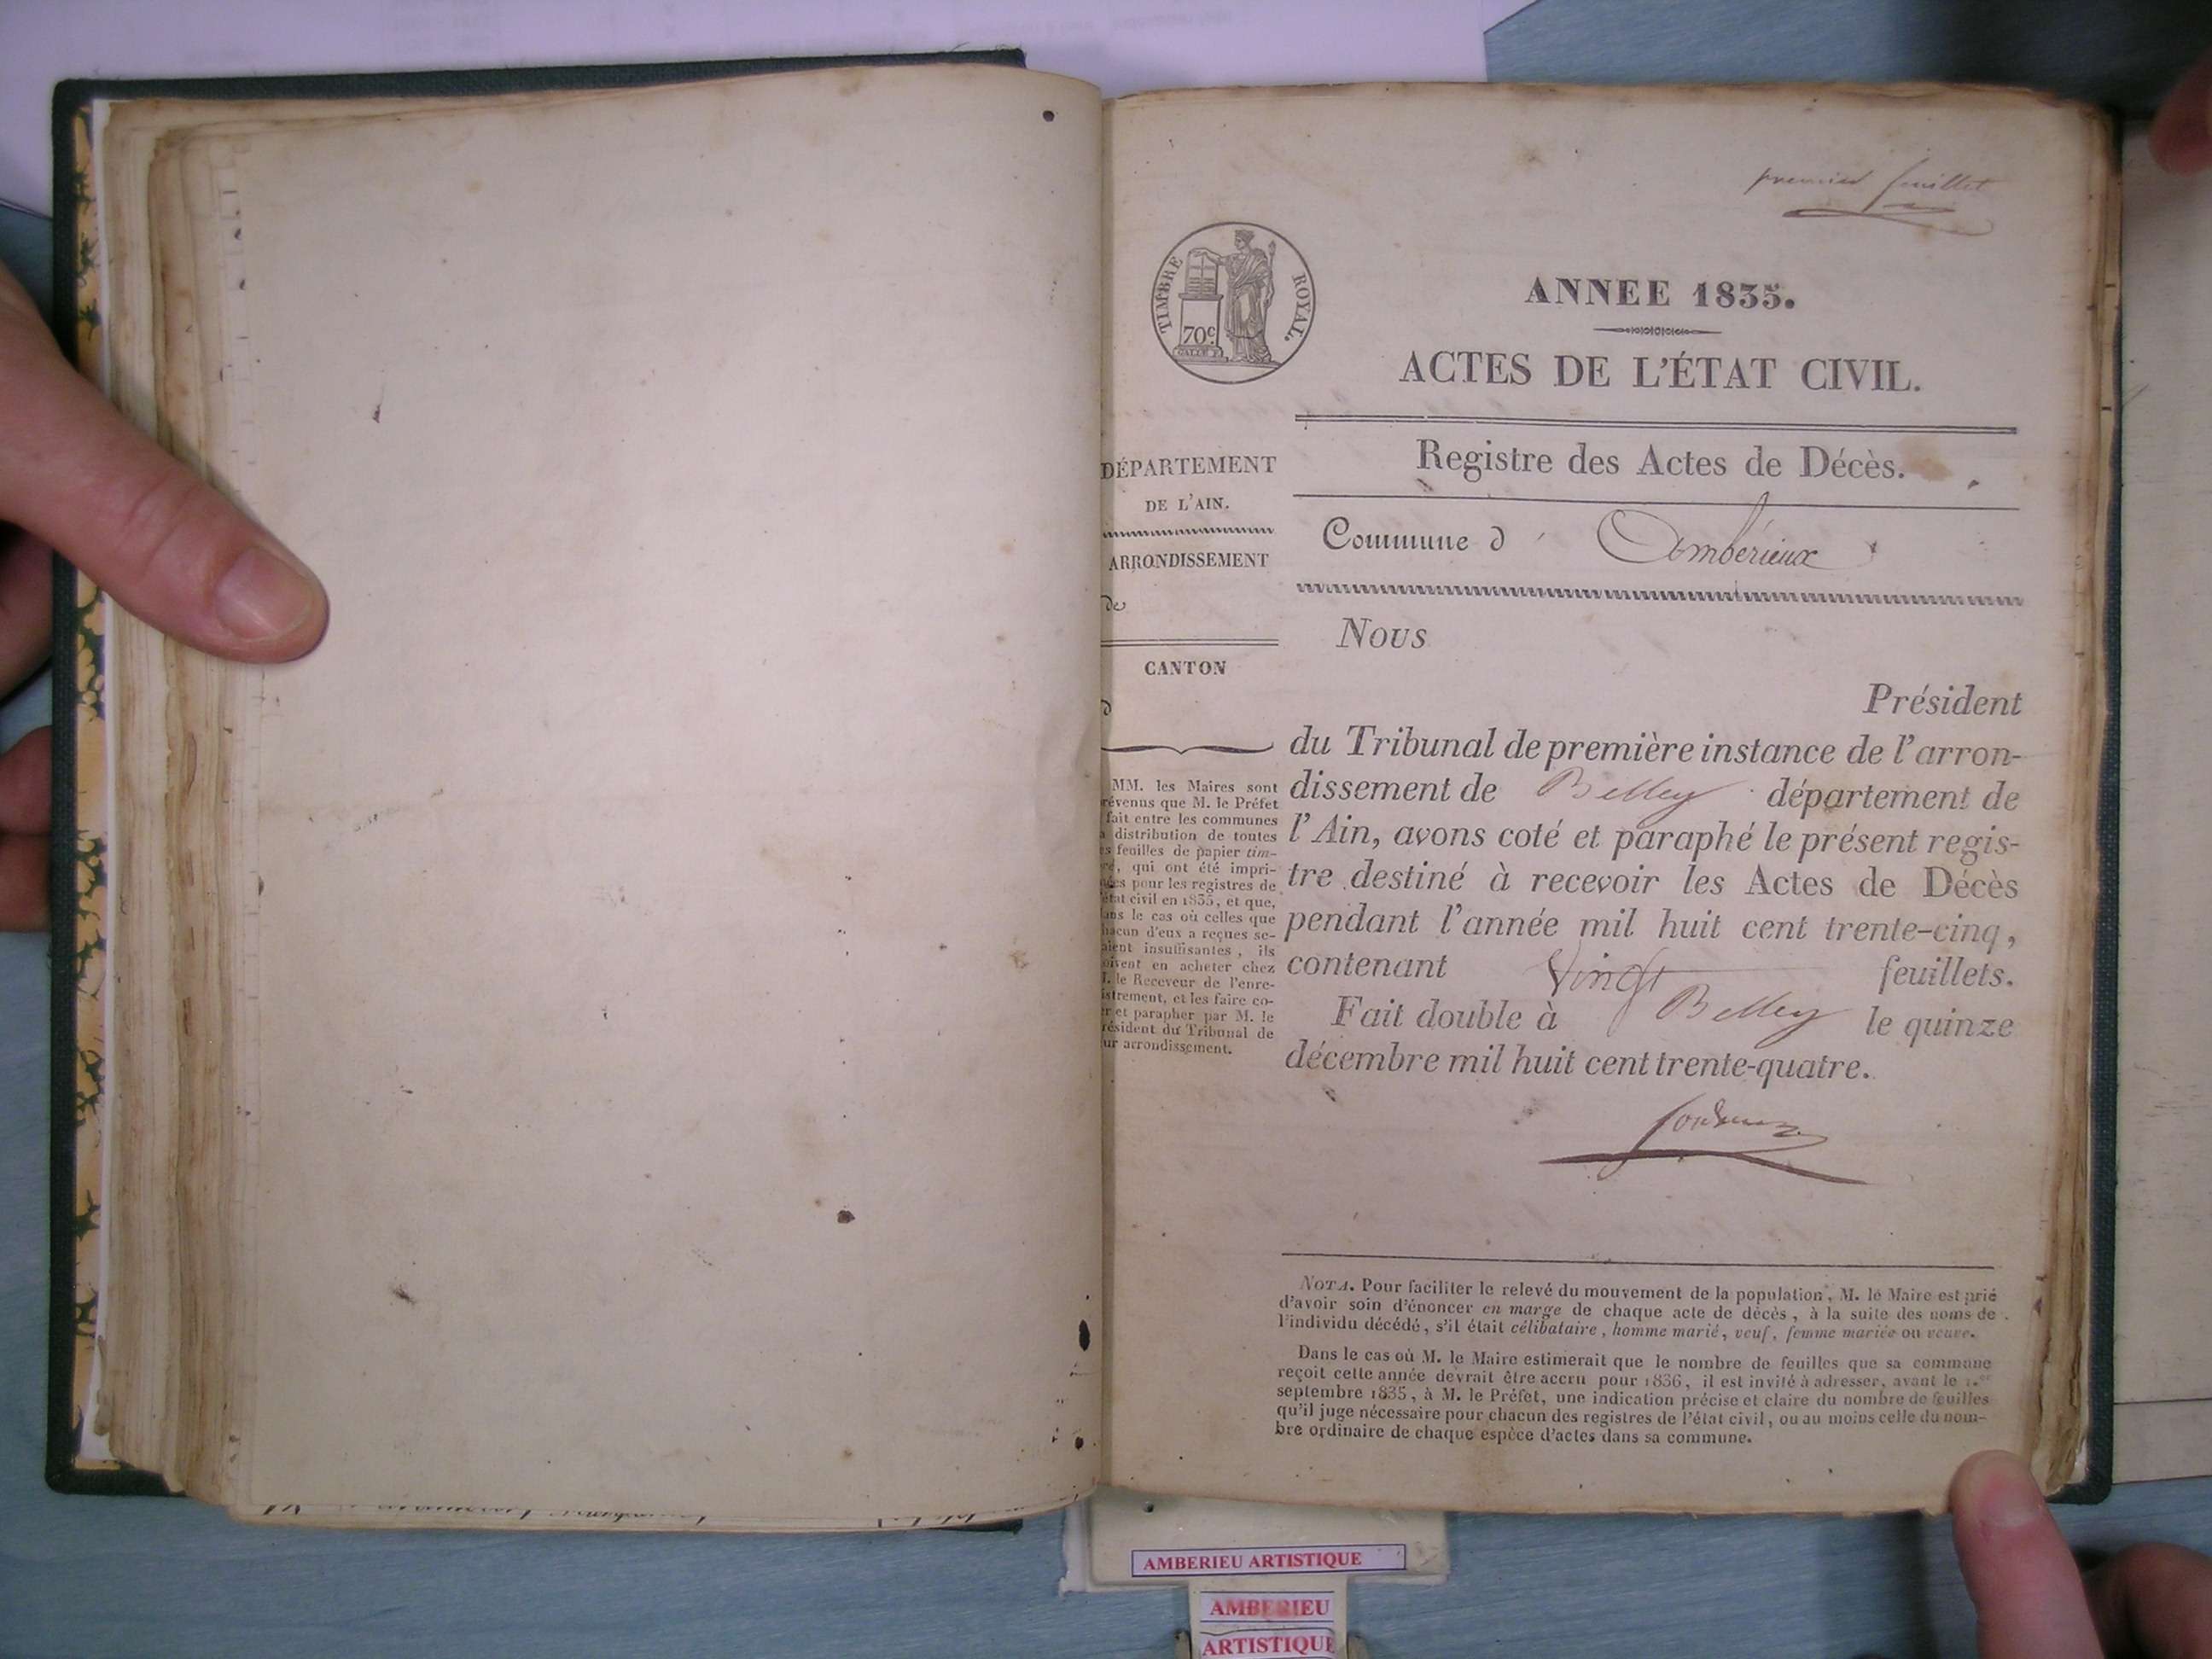 premier feuillet
TIMBRE ROYAL.
70c
ANNEE 1835.
ACTES DE L'ÉTAT CIVIL.
Registre des Actes de Décès.
Commune d' Ambérieux
DÉPARTEMENT
DE L'AIN.
ARRONDISSEMENT
de
CANTON
d
MM. les Maires sont
révenus que M. le Préfet
fait entre les communes
a distribution de toutes
es feuilles de papier tim-
ré, qui ont été impri-
mées pour les registres de
état civil en 1835, et que,
ans le cas où celles que
hacun d'eux a reçues se-
aient insuffisantes, ils
oivent en acheter chez
I. le Receveur de l'enre-
istrement, et les faire co-
er et parapher par M. le
résident du Tribunal de
ur arrondissement.
Nous
Président
du Tribunal de première instance de l'arron-
dissement de Belley département de
l'Ain, avons coté et paraphé le présent regis-
tre destiné à recevoir les Actes de Décès
pendant l'année mil huit cent trente-cinq,
contenant Vingt feuillets.
Fait double à Belley le quinze
décembre mil huit cent trente-quatre.
NOTA. Pour faciliter le relevé du mouvement de la population, M. le Maire est prié
d'avoir soin d'énoncer en marge de chaque acte de décès, à la suite des noms de
l'individu décédé, s'il était célibataire, homme marié, veuf, femme mariée ou veuve.
Dans le cas où M. le Maire estimerait que le nombre de feuilles que sa commune
reçoit cette année devrait être accru pour 1836, il est invité à adresser, avant le 1.er
septembre 1835, à M. le Préfet, une indication précise et claire du nombre de feuilles
qu'il juge nécessaire pour chacun des registres de l'état civil, ou au moins celle du nom-
bre ordinaire de chaque espèce d'actes dans sa commune.
AMBERIEU ARTISTIQUE
AMBERIEU
ARTISTIQUE